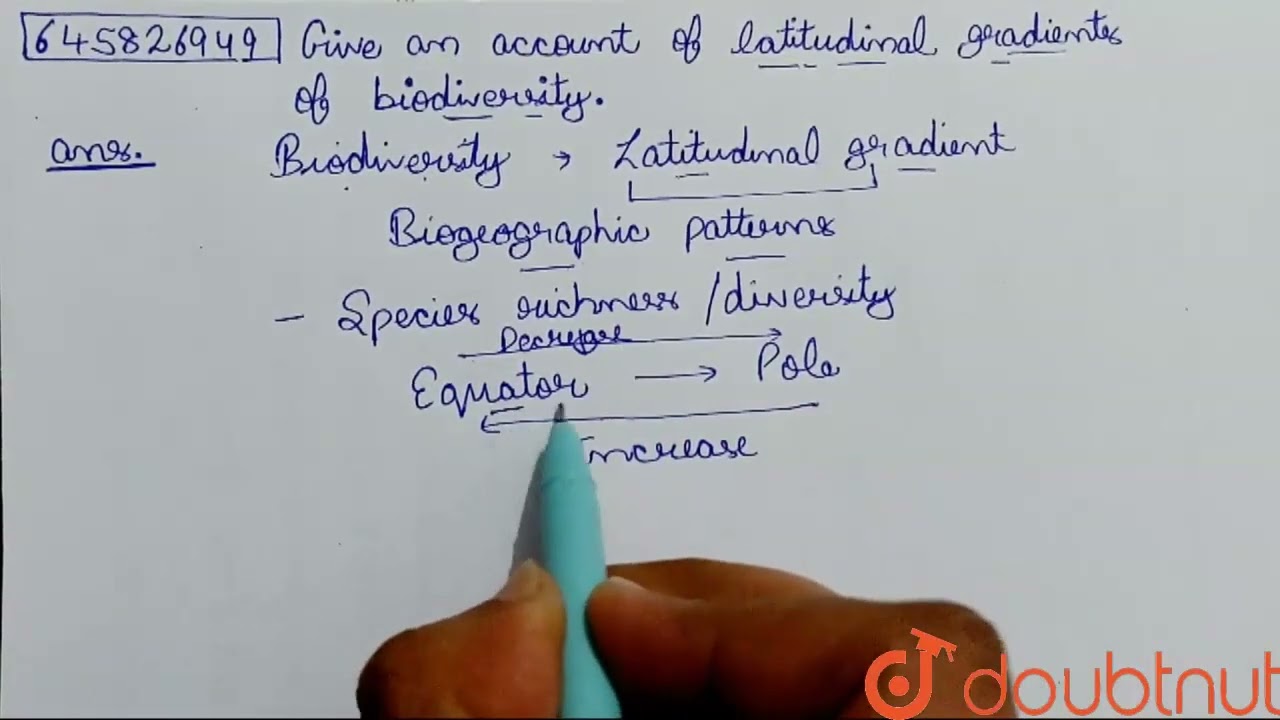 645826949 Give an account of latitudinal gradients
of biodiversity.
ans. Biodiversity → Latitudinal gradient
Biogeographic patterns
- Species richness / diversity
Decrease
Equator → Pole
increase
doubtnut